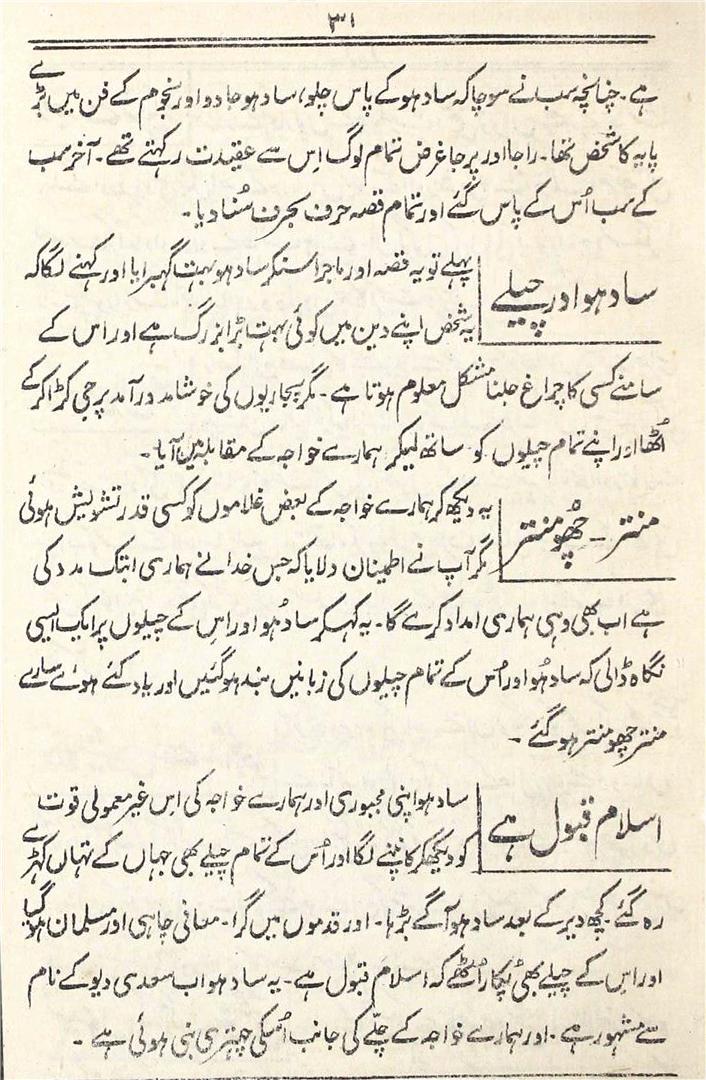 ۳۱
ہے۔ چنانچہ سب نے سوچا کہ سادہو کے پاس چلو، سادہو جادو اور نجوم کے فن میں بڑے
پایہ کا شخص تھا۔ راجا اور پرجا غرض تمام لوگ اس سے عقیدت رکہتے تھے۔ آخر سب
کے سب اُس کے پاس گئے اور تمام قصہ حرف بحرف سُنا دیا۔
سادہو اور چیلے
پہلے تو یہ قصہ اور ماجرا سنکر سادہو بہت گہبرایا اور کہنے لگا کہ
یہ شخص اپنے دین میں کوئی بہت بڑا بزرگ ہے اور اس کے
سامنے کسی کا چراغ جلنا مشکل معلوم ہوتا ہے۔ مگر پجاریوں کی خوشامد درآمد پر جی کڑا کر کے
اُٹھا اور اپنے تمام چیلوں کو ساتھ لیکر ہمارے خواجہ کے مقابلہ میں آیا۔
منتر۔ چُھو منتر
یہ دیکھ کر ہمارے خواجہ کے بعض غلاموں کو کسی قدر تشویش ہوئی
مگر آپ نے اطمینان دلایا کہ جس خدا نے ہماری ابتک مدد کی
ہے اب بھی وہی ہماری امداد کرے گا۔ یہ کہکر سادہُو اور اس کے چیلوں پر ایک ایسی
نگاہ ڈالی کہ سادہُو اور اُس کے تمام چیلوں کی زبانیں بند ہو گئیں اور یاد کئے ہوئے سارے
منتر چھو منتر ہو گئے۔
اسلام قبول ہے
سادہو اپنی مجبوری اور ہمارے خواجہ کی اس غیر معمولی قوت
کو دیکھکر کانپنے لگا اور اُس کے تمام چیلے بھی جہاں کے تہاں کھڑے
رہ گئے۔ کچھ دیر کے بعد سادہو آگے بڑہا۔ اور قدموں میں گرا۔ معافی چاہی اور مسلمان ہو گیا
اور اس کے چیلے بھی پُکار اُٹھے کہ اسلام قبول ہے۔ یہ سادہو اب سعدی دیو کے نام
سے مشہور ہے۔ اور ہمارے خواجہ کے چلّے کی جانب اُسکی چہتری بنی ہوئی ہے۔